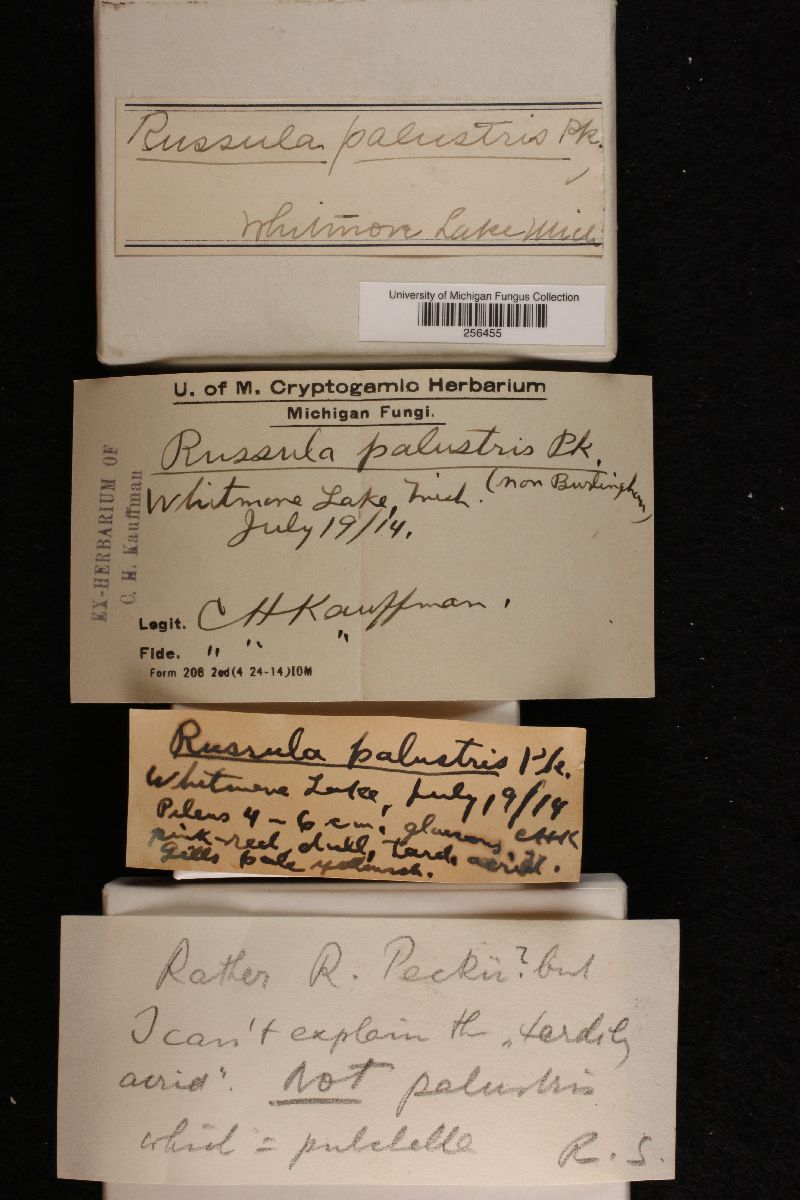 Russula palustris Pk.
Whitmore Lake Mich
University of Michigan Fungus Collection
256455
U. of M. Cryptogamic Herbarium
Michigan Fungi.
EX-HERBARIUM OF
C. H. Kauffman
Russula palustris Pk.
(non Burlingham)
Whitmore Lake, Mich.
July 19/14.
Legit. CHKauffman.
Fide. " " "
Form 208 2ed(4 24-14)10M
Russula palustris Pk.
Whitmore Lake, July 19/14
CHK
Pileus 4-6 cm, glaucous,
pink-red, dull, tard. acrid.
Gills pale yellowish.
Rather R. Peckii? but
I can't explain the „tardily
acrid". Not palustris
which = pulchella
R. S.